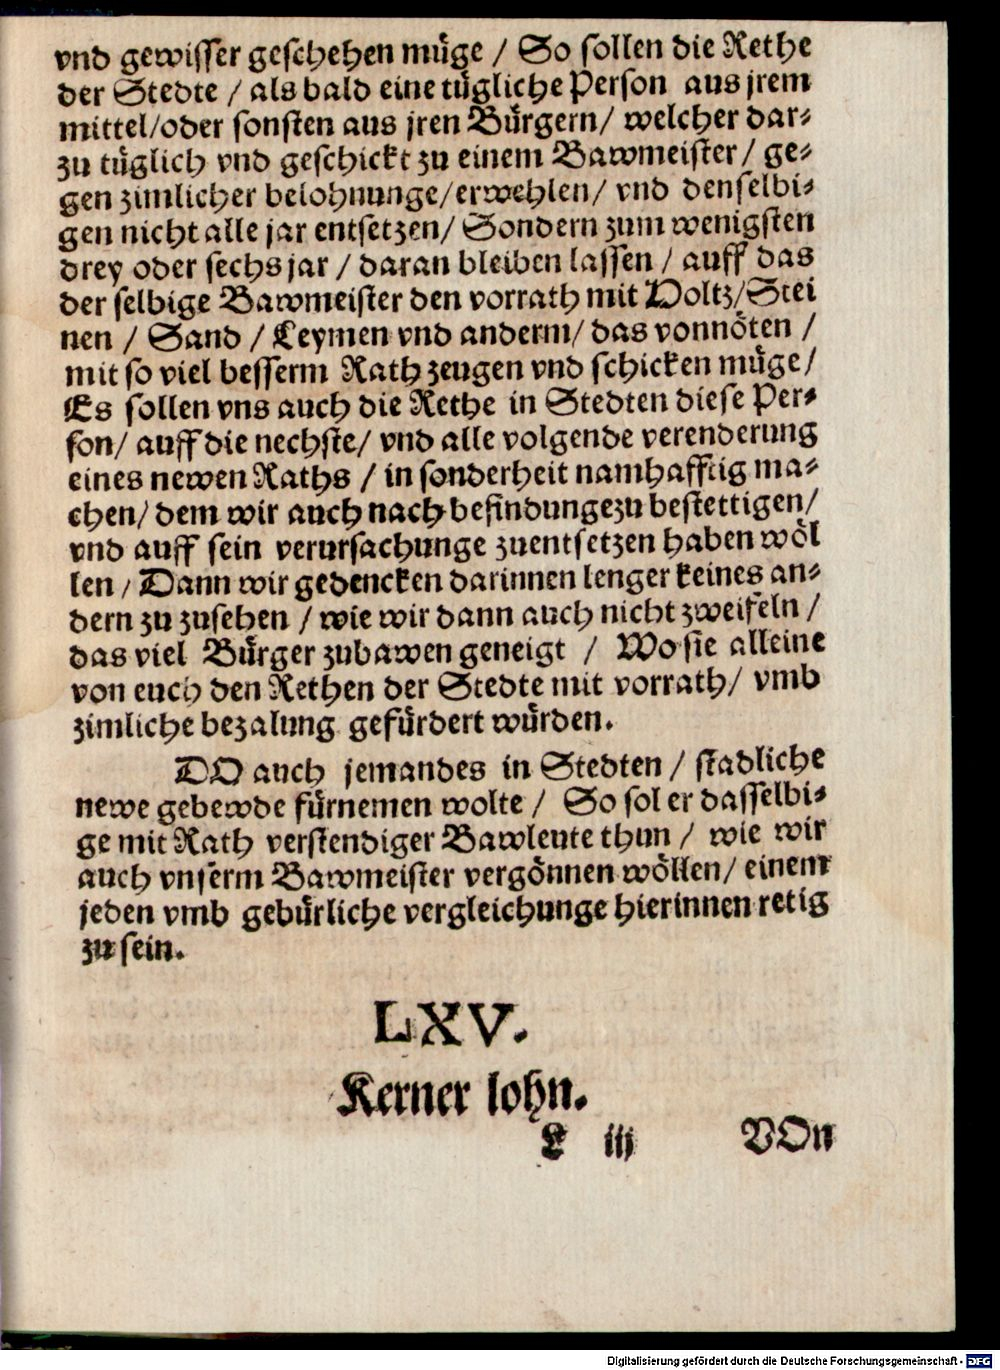 vnd gewisser geschehen müge / So sollen die Rethe
der Stedte / als bald eine tügliche Person aus jrem
mittel/oder sonsten aus jren Bürgern/ welcher dar⸗
zu tüglich vnd geschickt zu einem Bawmeister/ ge⸗
gen zimlicher belohnunge/erwehlen/ vnd denselbi⸗
gen nicht alle jar entsetzen/ Sondern zum wenigsten
drey oder sechs jar / daran bleiben lassen / auff das
der selbige Bawmeister den vorrath mit Holtz/Stei
nen / Sand / Leymen vnd anderm/ das vonnöten /
mit so viel besserm Rath zeugen vnd schicken müge/
Es sollen vns auch die Rethe in Stedten diese Per⸗
son/ auff die nechste/ vnd alle volgende verenderung
eines newen Raths / in sonderheit namhafftig ma⸗
chen/ dem wir auch nach befindunge zu bestettigen/
vnd auff sein verursachunge zuentsetzen haben wöl
len / Dann wir gedencken darinnen lenger keines an⸗
dern zu zusehen / wie wir dann auch nicht zweifeln /
das viel Bürger zubawen geneigt / Wo sie alleine
von euch den Rethen der Stedte mit vorrath/ vmb
zimliche bezalung gefürdert würden.
DO auch jemandes in Stedten / stadliche
newe gebewde fürnemen wolte / So sol er dasselbi⸗
ge mit Rath verstendiger Bawleute thun / wie wir
auch vnserm Bawmeister vergönnen wöllen/ einem
jeden vmb gebürliche vergleichunge hierinnen retig
zu sein.
LXV.
Kerner lohn.
L iij VOn
Digitalisierung gefördert durch die Deutsche Forschungsgemeinschaft - DFG